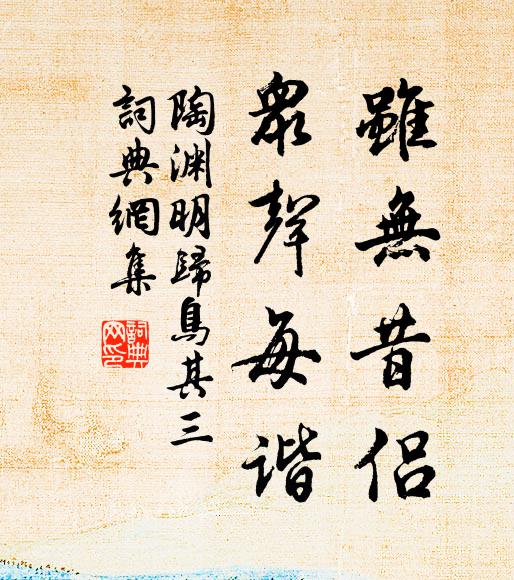 雖無昔侶
眾聲每谐
陶渊明歸鳥其三
詞典網集
詞典
网印